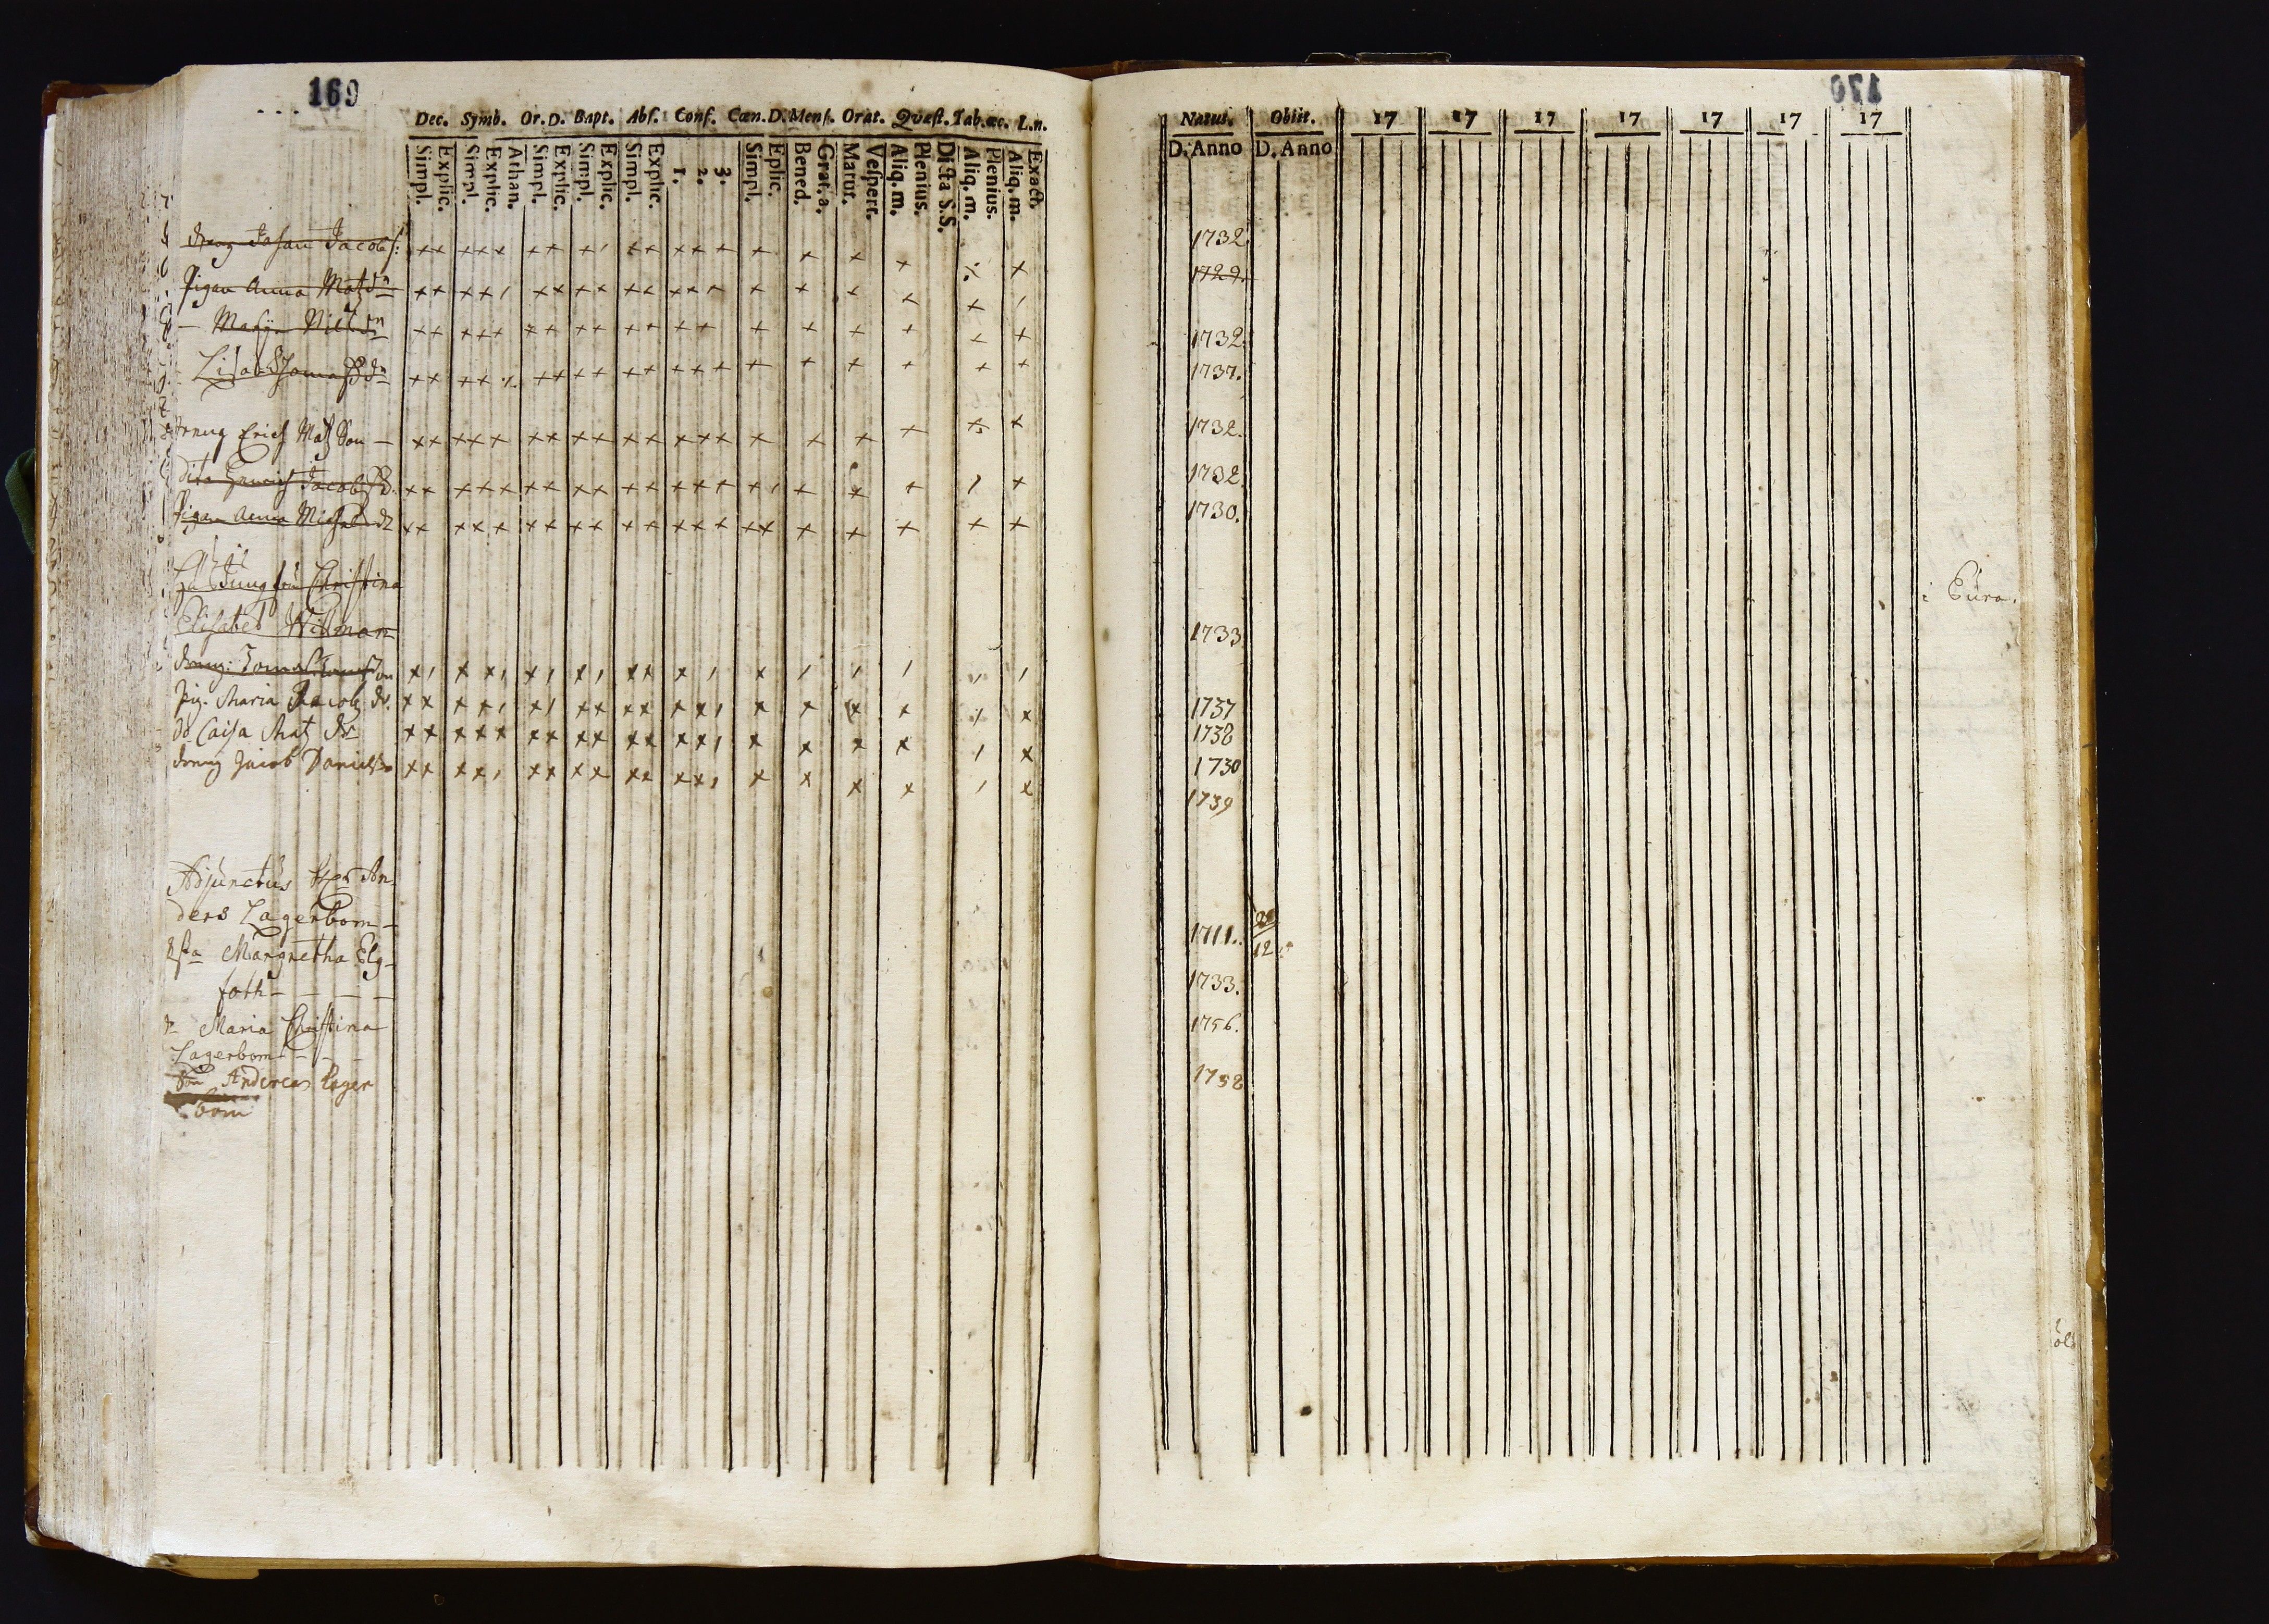 169
Dec. Symb. Or. D. Bapt. Abs. Conf. Cœn. D. Mens. Orat. Qvæst. Tab. œc. L. n.
Simpl. Explic. Simpl. Explic. Athan. Simpl. Explic. Simpl. Explic. Simpl. Explic. 1. 2. 3. Simpl. Eplic. Bened. Grat. a. Matut. Vespert. Aliq. m. Plenius. Dicta S.S. Aliq. m. Plenius. Aliq. m. Exacte.
Dreng Johan Jacobs:
Pigan Anna Matzdr
Lisa Thomasdr
Dreng Erich Matz Son
Dito Henrich Jacobs
Pigan Anna Michelsdr
Jungfru Christina
Elisabet Wilman
Pig. Maria Jacobs dr.
do Caisa Mats dr
Dreng Jacob Daniels
Adjunctus Hr An-
ders Lagerbom
Margretha Elg-
foth
Maria Christina
Lagerbom
Son Andreas Lager
bom
170
Natus. Obiit. 17 17 17 17 17 17 17
D. Anno D. Anno
1732
1729.
1732.
1737.
1732.
1732.
1730.
Eura.
1733
1737
1738
1730
1739
1711. 12
1733.
1756.
1758